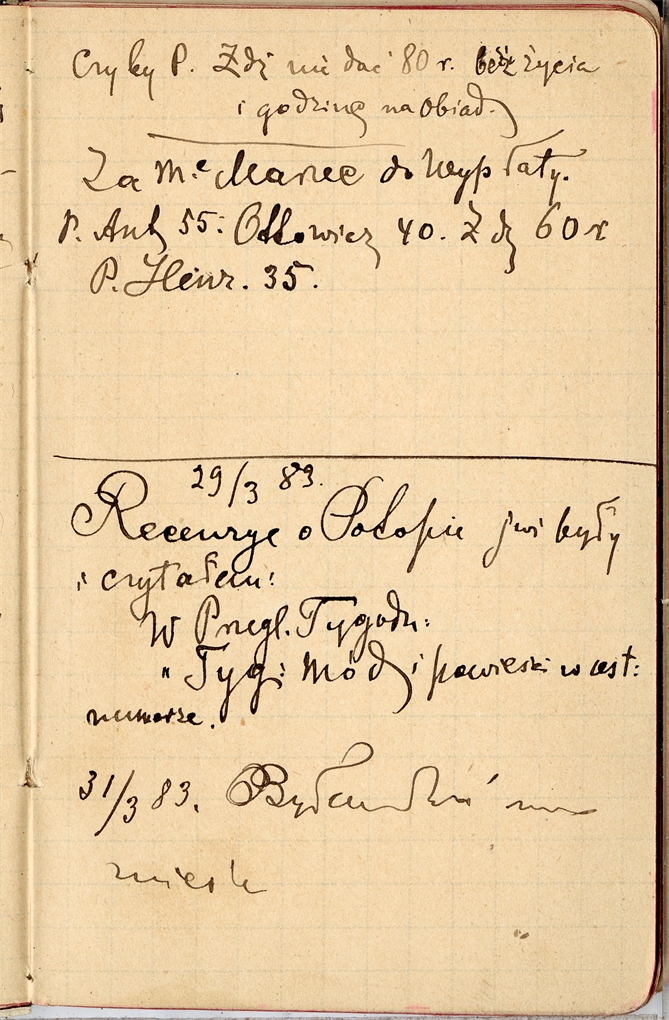 Czyby P. Zdz nie dać 80 r. bez życia
i godzinę na Obiad.
Za Me Maniee do wypłaty.
P. Ant 55: Ottowicz 40. Zdz 60 r
P. Henr. 35.
29/3 83.
Recenzye o Potopie już były
i czytałem:
W Przegl. Tygodn:
" Tyg: Mód i powieści w ost:
numerze.
31/3 83. Byłem dziś na